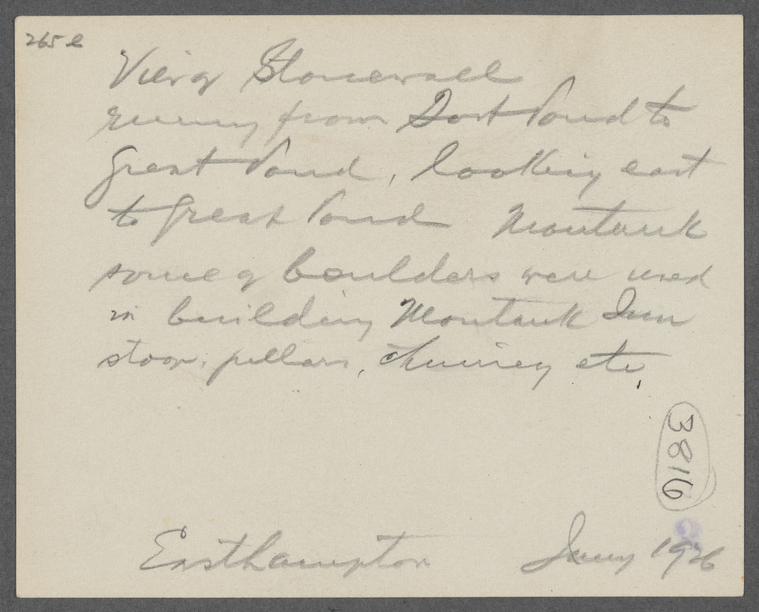 265 e
View of Stonewall
runing from Fort Pond to
Great Pond, looking east
to Great Pond Montauk
some of boulders were used
in building Montauk Inn
stoop, pillars, chimney etc,
3816
Easthampton 1926